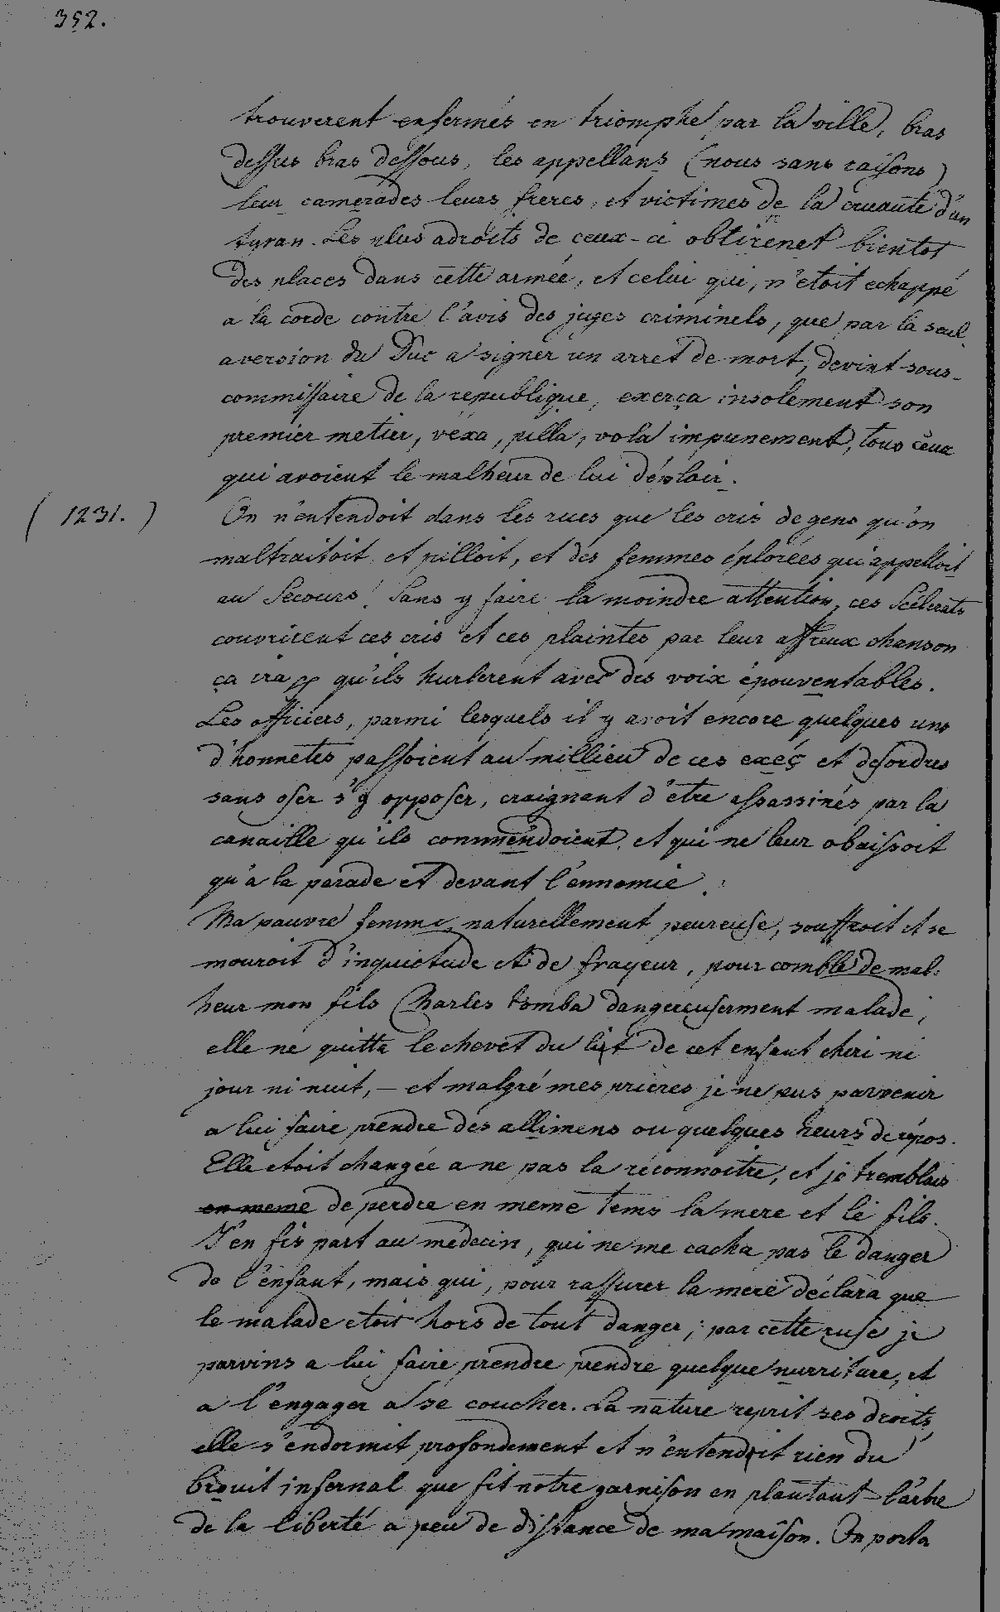 352.
trouverent enfermés en triomphe par la ville, bras
dessus bras dessous, les appellans (nous sans raisons)
leur camerades leurs freres, et victimes de la cruauté d'un
tyran. Les plus adroits de ceux-ci obtirenet bientot
des places dans cette armée, et celui qui, n'etoit echappé
a la corde contre l'avis des juges criminels, que par la seul
aversion du Duc a signer un arret de mort, devint sous-
commissaire de la republique, exerça insolement son
premier metier, véxa, pilla, vola impunement, tous ceux
qui avoient le malheur de lui déplair.
(1231.) On n'entendoit dans les rues que les cris de gens qu'on
maltraitoit et pilloit, et des femmes éplorées qui appelloit
au Secours! Sans y faire la moindre attention, ces Scélerats
couvrirent ces cris et ces plaintes par leur affreux chanson
ça ira qu'ils hurlerent avec des voix épouventables.
Les officiers, parmi lesquels il y avoit encore quelques uns
d'honnetes passoient au millieu de ces exéç et desordres
sans oser s'y opposer, craignant d'etre assassinés par la
canaille qu'ils commendoient, et qui ne leur obaissoit
qu'a la parade et devant l'ennomie.
Ma pauvre femme, naturellement peureuse, souffroit et se
mouroit d'inquietude et de frayeur, pour comble de mal:
heur mon fils Charles tomba dangereusement malade;
elle ne quitta le chevet du lit de cet enfant cheri ni
jour ni nuit, – et malgré mes prieres je ne pus parvenir
a lui faire prendre des allimens ou quelques heurs de répos.
Elle etoit changée a ne pas la réconnoitre, et je tremblais
en meme de perdre en meme tems la mere et le fils.
J'en fis part au medecin, qui ne me cacha pas le danger
de l'enfant, mais qui, pour rassurer la mere déclara que
le malade etoit hors de tout danger; par cette ruse je
parvins a lui faire prendre prendre quelque nurriture, et
a l'engager a se coucher. La nature reprit ses droits,
elle s'endormit profondement et n'entendoit rien du
brouit infernal que fit notre garnison en plantant l'arbre
de la liberté a peu de distance de ma maison. On porta